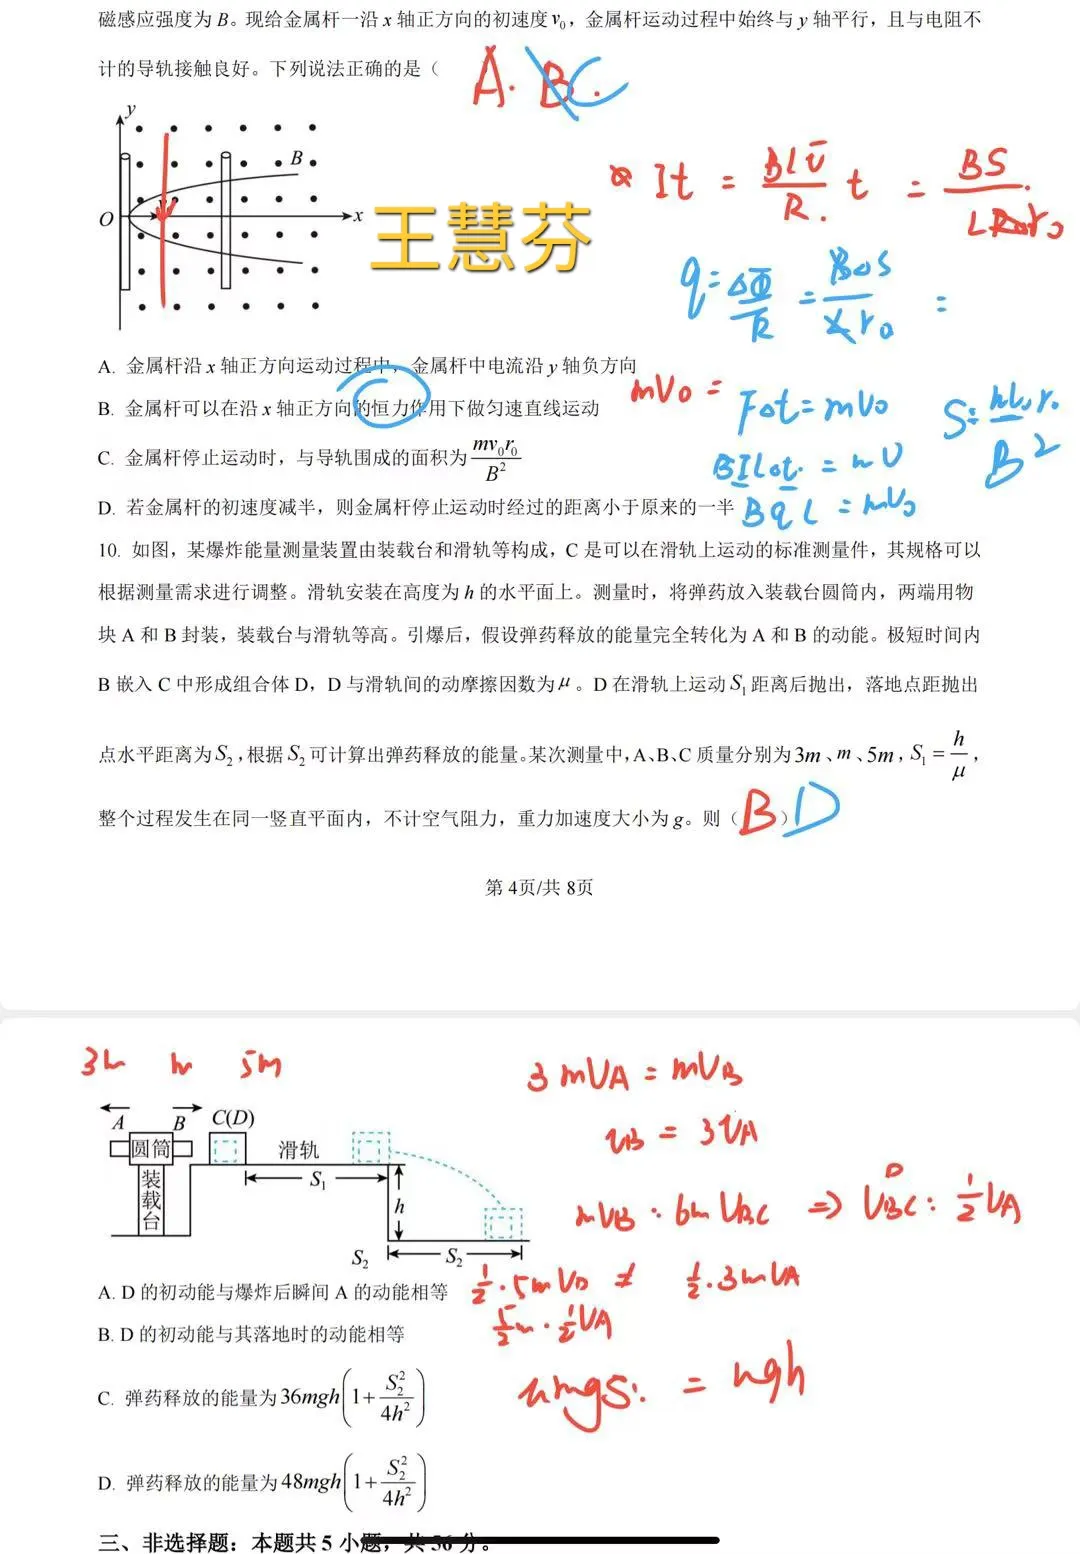 磁感应强度为 B。现给金属杆一沿 x 轴正方向的初速度 v₀，金属杆运动过程中始终与 y 轴平行，且与电阻不
计的导轨接触良好。下列说法正确的是（
A. B C.
y
B
O
x
王慧芬
It = BLv̄/R. t = BS/Lr₀
q = ΔΦ/R = BΔS/r₀ =
A. 金属杆沿 x 轴正方向运动过程中，金属杆中电流沿 y 轴负方向
mv₀ =
B. 金属杆可以在沿 x 轴正方向的恒力作用下做匀速直线运动
FΔt = mv₀
C. 金属杆停止运动时，与导轨围成的面积为 mv₀r₀/B²
BILΔt = mv
D. 若金属杆的初速度减半，则金属杆停止运动时经过的距离小于原来的一半
BqL = mv₀
10. 如图，某爆炸能量测量装置由装载台和滑轨等构成，C 是可以在滑轨上运动的标准测量件，其规格可以
根据测量需求进行调整。滑轨安装在高度为 h 的水平面上。测量时，将弹药放入装载台圆筒内，两端用物
块 A 和 B 封装，装载台与滑轨等高。引爆后，假设弹药释放的能量完全转化为 A 和 B 的动能。极短时间内
B 嵌入 C 中形成组合体 D，D 与滑轨间的动摩擦因数为 μ。D 在滑轨上运动 S₁ 距离后抛出，落地点距抛出
点水平距离为 S₂，根据 S₂ 可计算出弹药释放的能量。某次测量中，A、B、C 质量分别为 3m、m、5m，S₁ = h/μ，
整个过程发生在同一竖直平面内，不计空气阻力，重力加速度大小为 g。则（ BD ）
第 4页/共 8页
3m m 5m
3mvA = mvB
vB = 3vA
A B C(D)
圆筒
滑轨
装载台
S₁
h
S₂
S₂
mvB = 6mvBC ⇒ vBC = ½vA
D
A. D 的初动能与爆炸后瞬间 A 的动能相等
½·5mvD ≠ ½·3mvA
B. D 的初动能与其落地时的动能相等
5/2m·½vA
C. 弹药释放的能量为 36mgh(1+S₂²/4h²)
μmgS₁ = mgh
D. 弹药释放的能量为 48mgh(1+S₂²/4h²)
三、非选择题：本题共 5 小题，共 56 分。